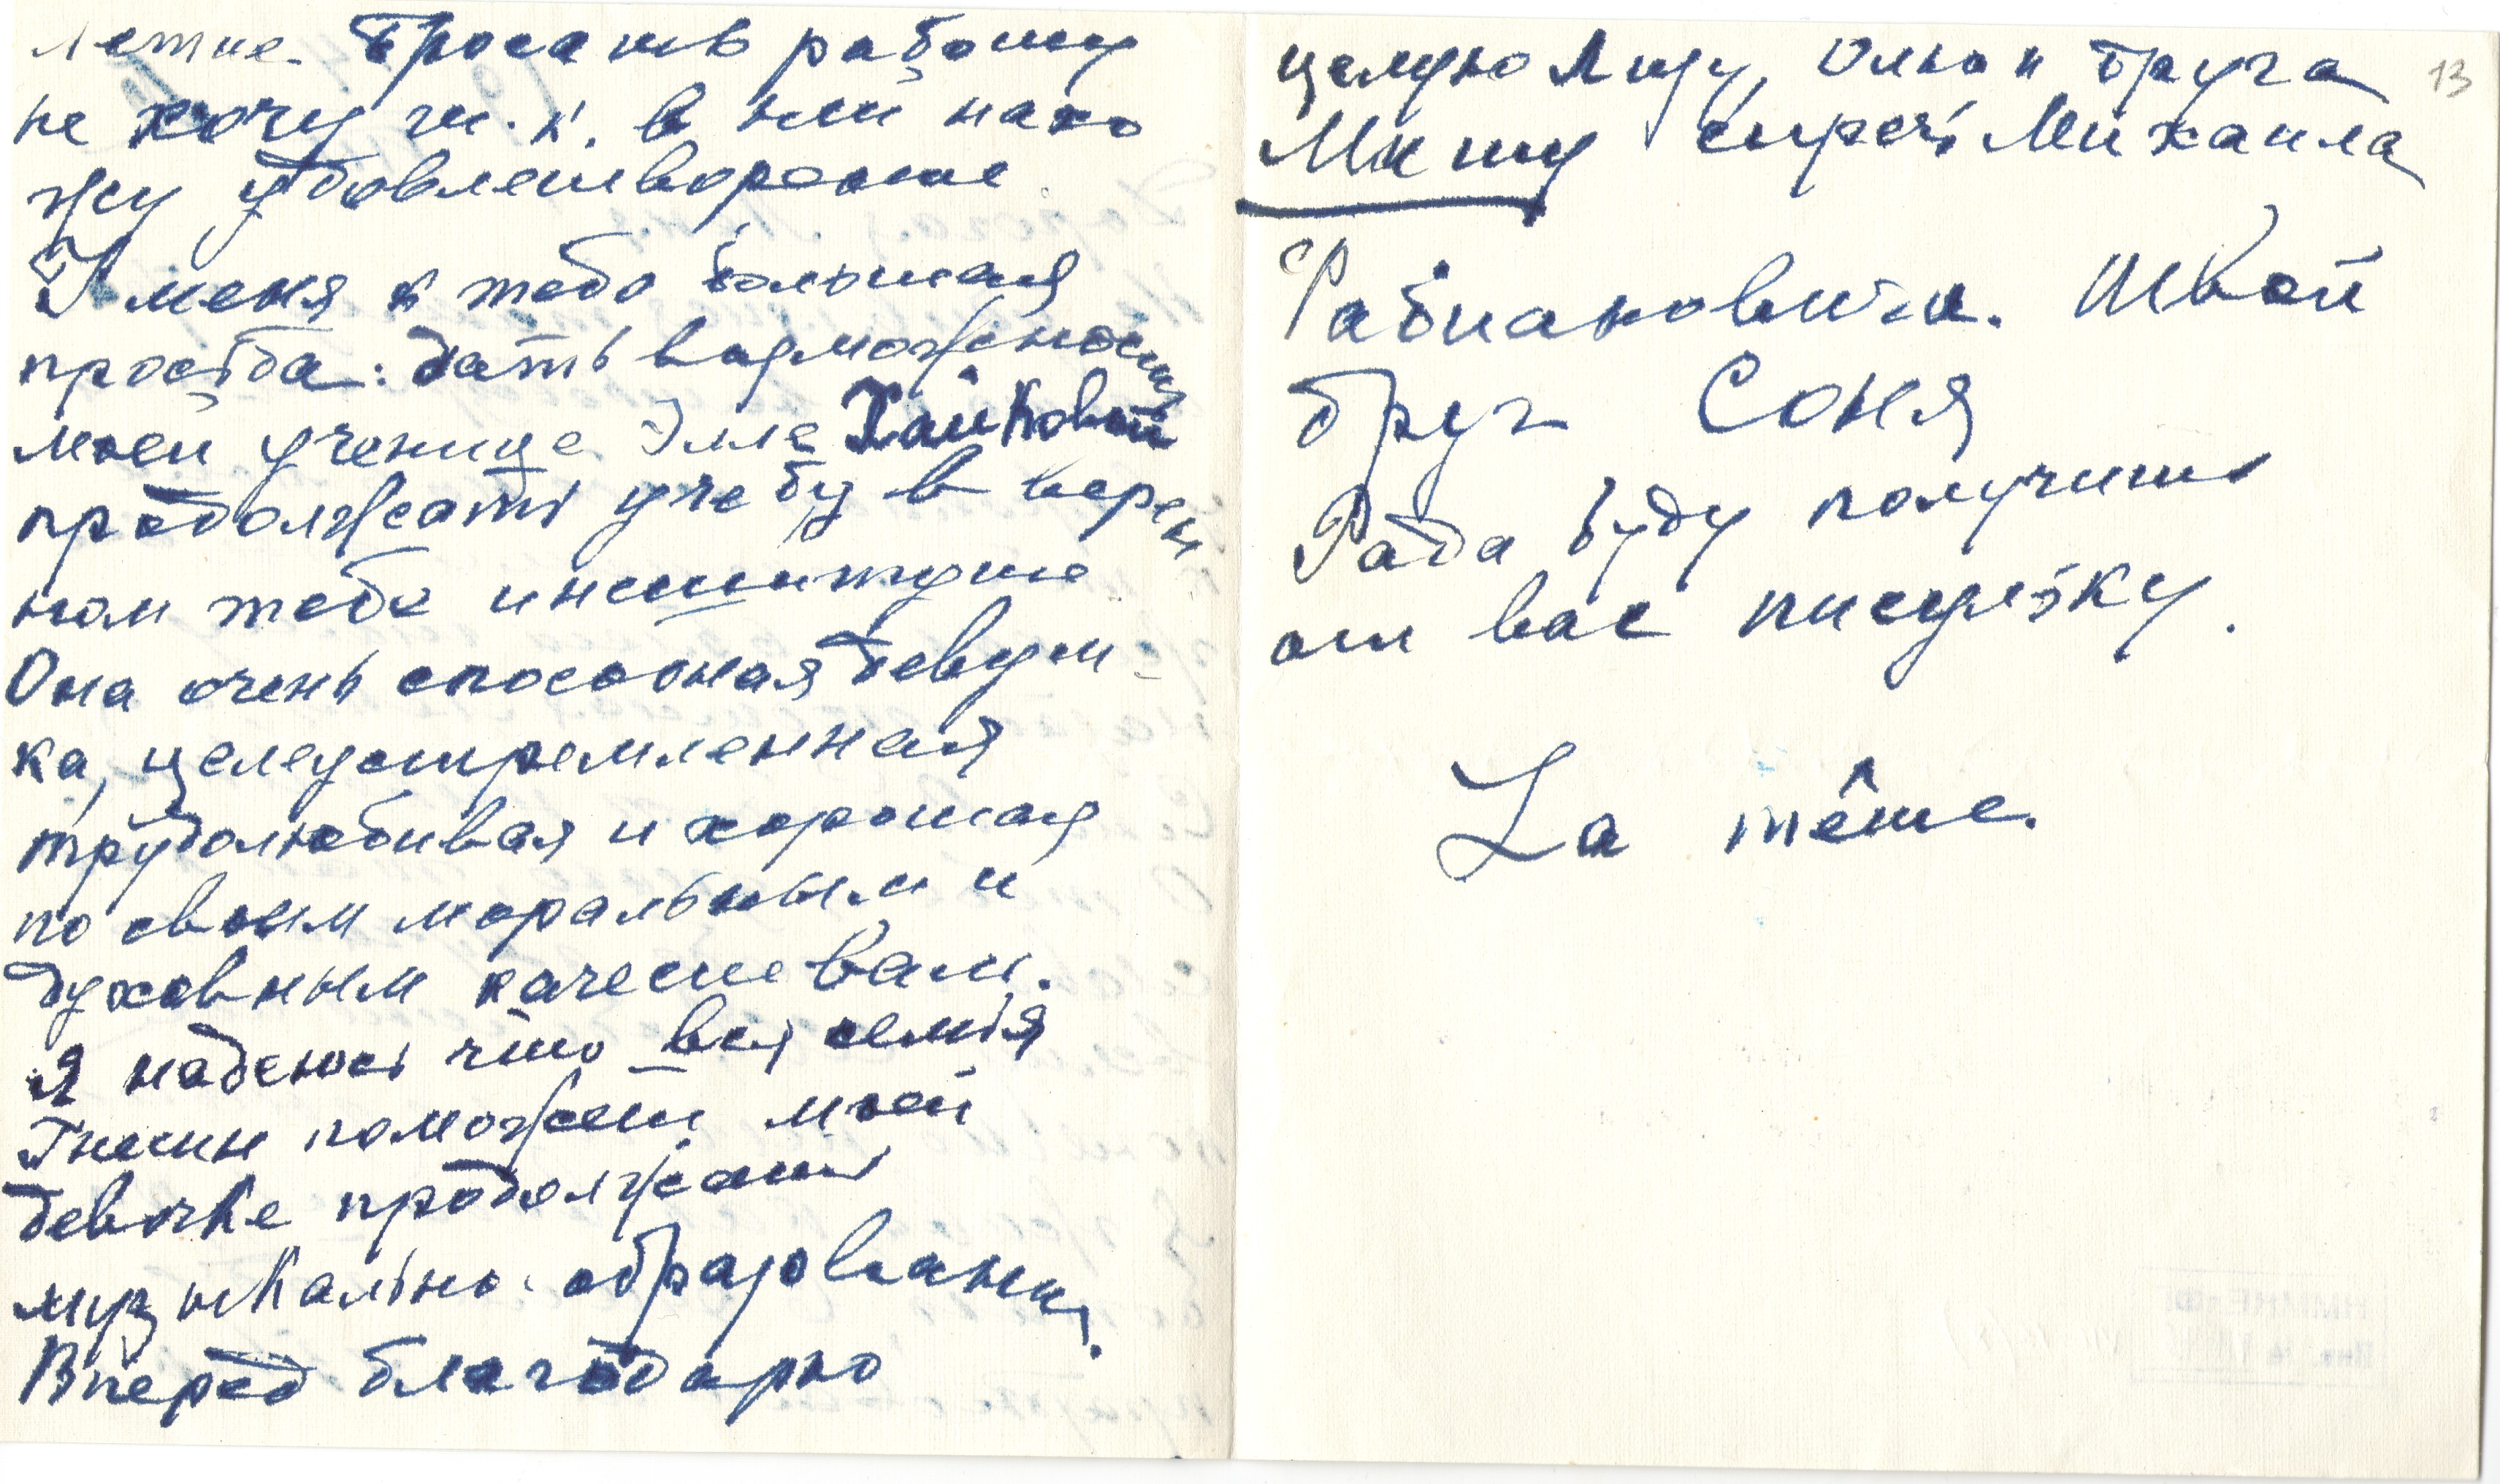 летие. Бросать работу
не хочу т. к. в ней нахо
жу удовлетворение.
У меня к тебе большая
просьба: дать возможность
моей ученице Элле Хайковой
продолжать учебу в верен
ном тебе институте
Она очень способная девуш-
ка, целеустремленная
трудолюбивая и хорошая
по своим моральным и
духовным качествам.
Я надеюсь что вся семья
Гнесин поможет моей
девочке продолжать
музыкально образовани
Вперед благодарю
13
целую Лизу, Олю и друга
Мишу сиречь Михаила
Фабиановича. Твой
друг Соня
Рада буду получить
от вас писульку.
La même.